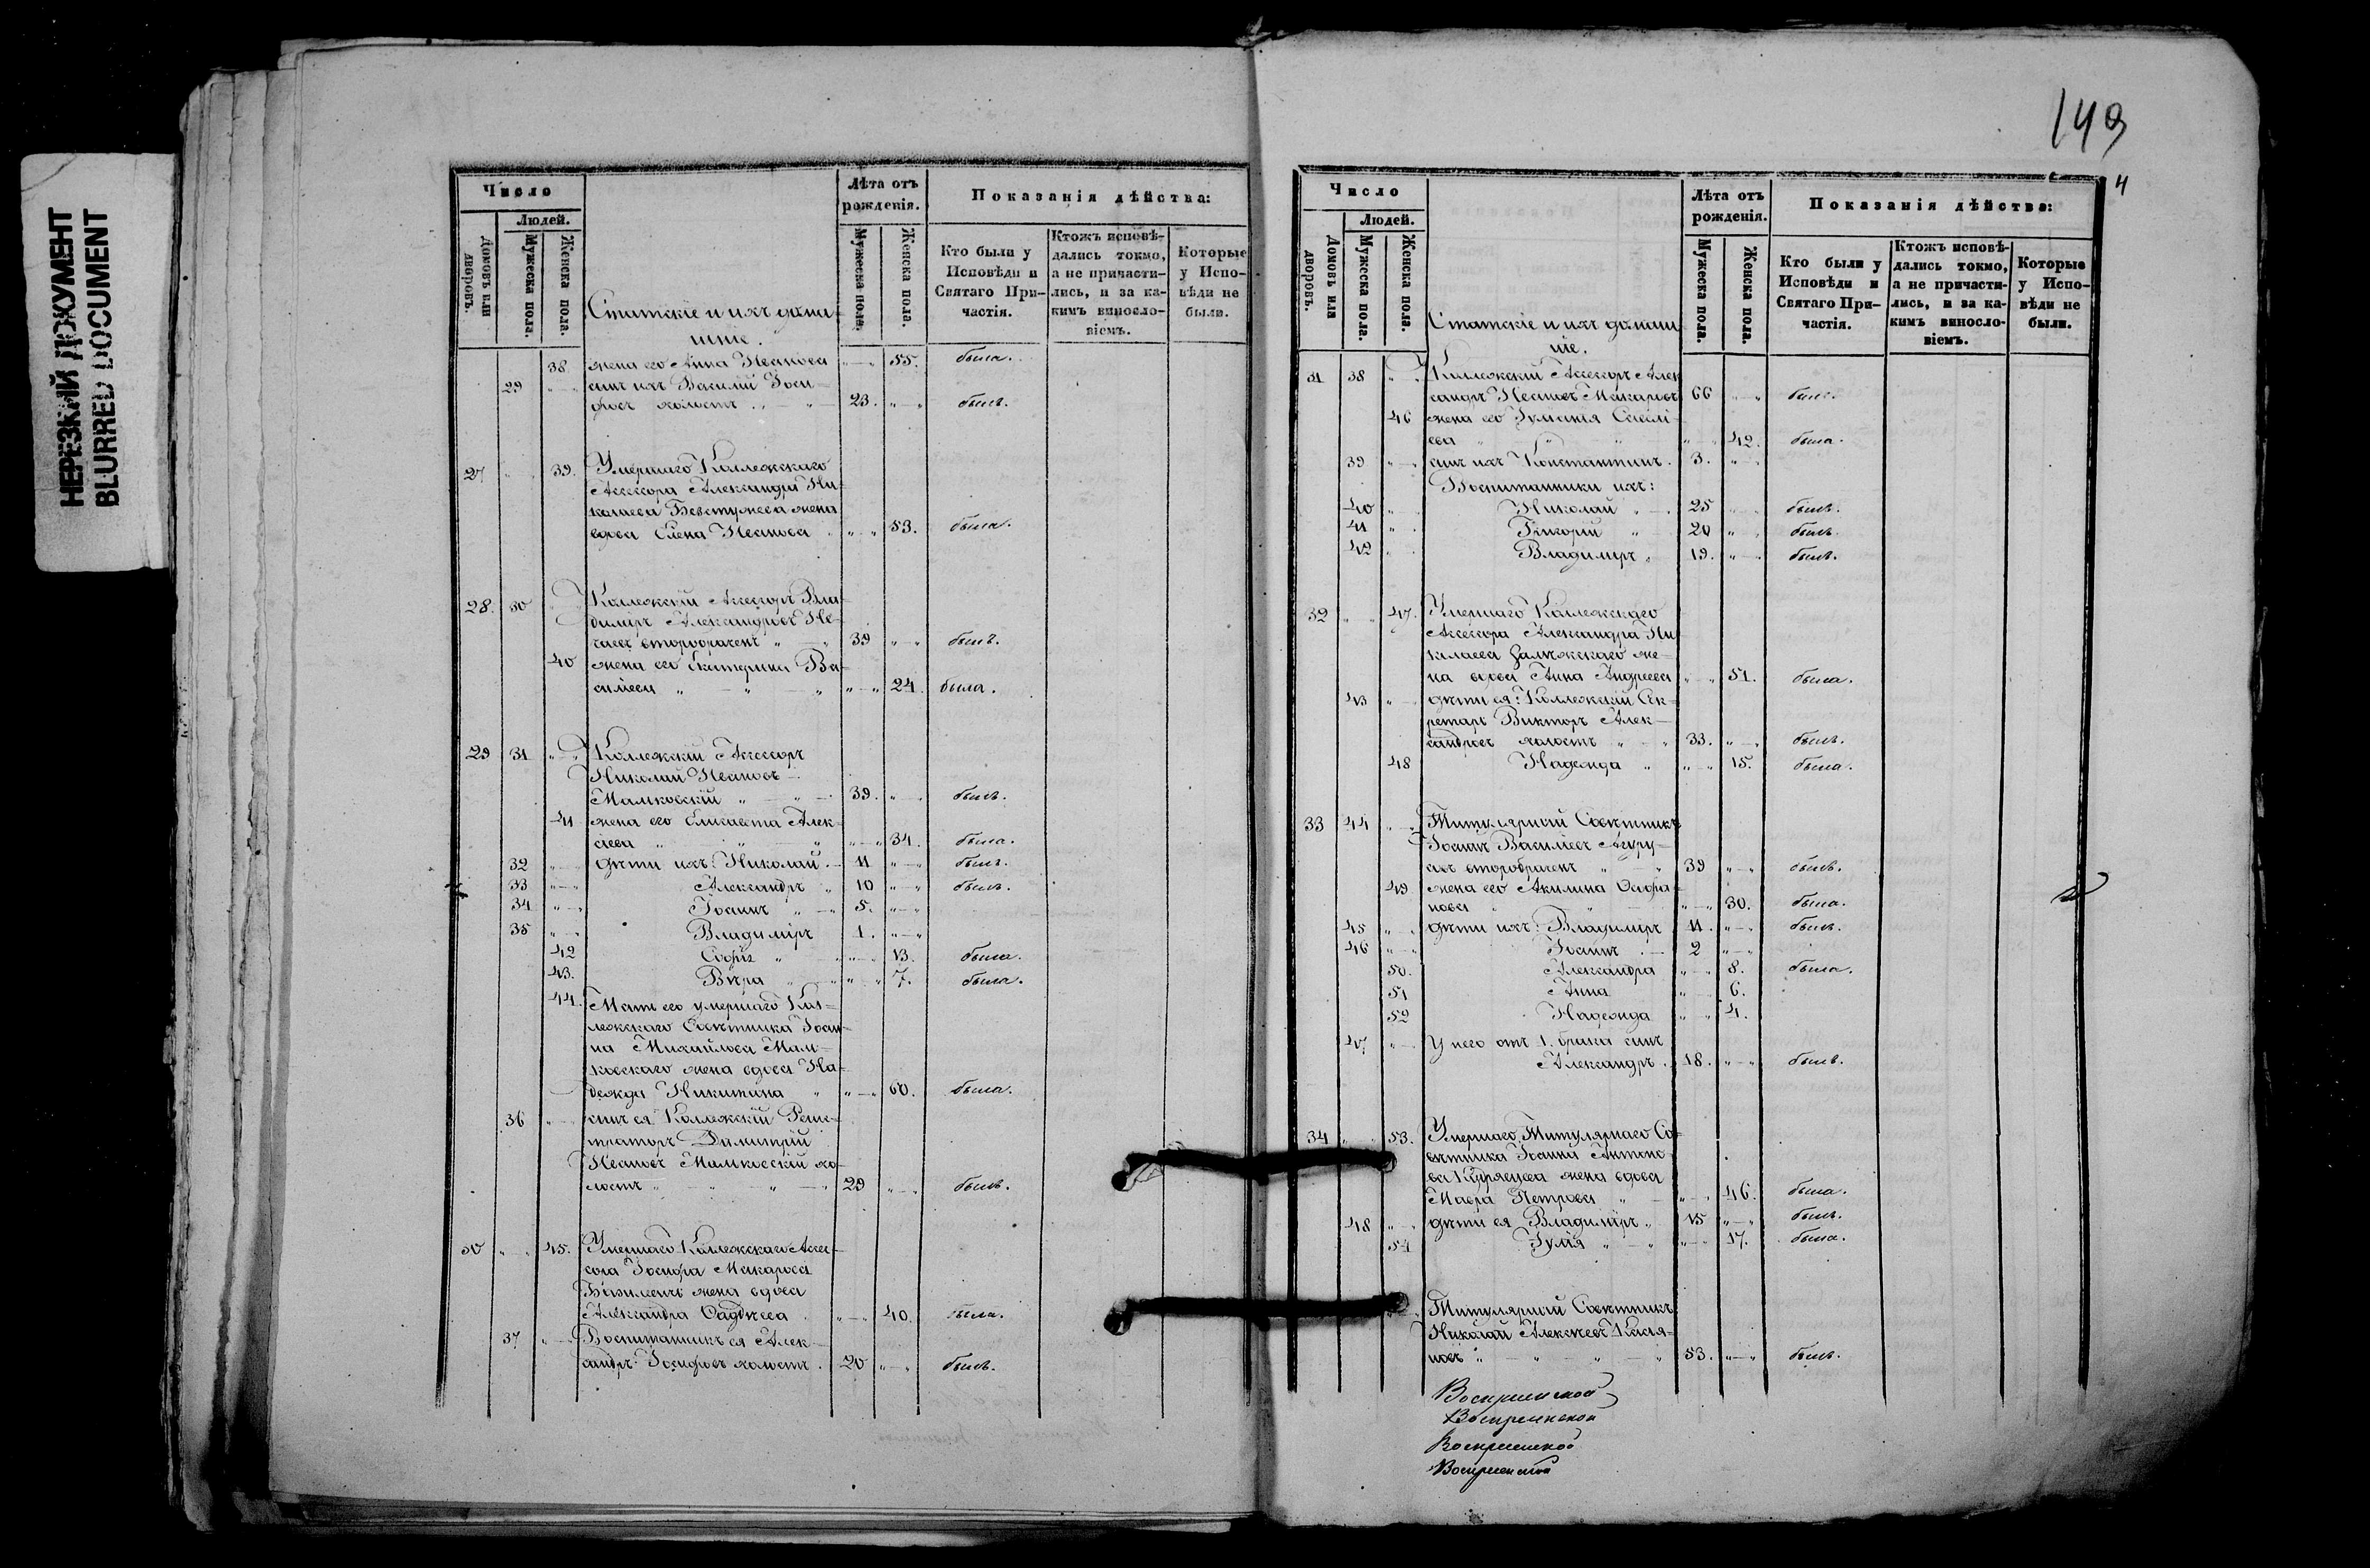 НЕРЕЗКИЙ ДОКУМЕНТ
BLURRED DOCUMENT
Число
Людей.
Домовъ или дворовъ.
Мужеска пола.
Женска пола.
Статскіе и ихъ домаш
ніе.
Лѣта отъ рожденія.
Мужеска пола.
Женска пола.
Показанія дѣйства:
Кто были у Исповѣди и Святаго При-частія.
Ктожъ исповѣ-дались токмо, а не причасти-лись, и за ка-кимъ винословіемъ.
Которые у Испо-вѣди не были.
38 жена его Анна Иванова " — " 55. была.
29 " — " сынъ ихъ Василій Іоси-
фовъ холостъ " — " 23. " — " былъ.
27 " " 39. Умершаго Коллежскаго
Ассесора Александра Ни-
колаева Бевстужева жена
вдова Елена Иванова " " — " 53. была.
28. 30 " Коллежскій Ассесоръ Вла-
диміръ Александровъ Не-
чаевъ второбраченъ " — " 39 " — " былъ.
40 жена его Екатерина Ва-
силіева " — " — " " — " 24. была.
29 31 " — " Коллежскій Ассесоръ
Николай Ивановъ —
Малковскій " — " — 39. " — " былъ.
41 жена его Елисавета Алек-
сіева " " — " " — " 34. была.
32 " — " дѣти ихъ: Николай. — 11 " — " былъ.
33 " — " Александръ " 10 " — " былъ.
34 " — " Іоаннъ " — " 5. " — "
35 " — " Владиміръ 1. " — "
42 Софія " " — " 13. была.
43. Вѣра " — " " " 7. была.
44. Мать его умершаго Кол-
лежскаго Совѣтника Іоан-
на Михайлова Мал-
ковскаго жена вдова На-
дежда Никитина " " — " 60. была.
36 " — " сынъ ея Коллежскій Реги-
страторъ Димитрій
Ивановъ Малковскій хо-
лостъ " " " — " 29 " — " былъ.
30 " — " 45. Умершаго Коллежскаго Ассе-
сора Іосифа Макарова
жена вдова
Александра Фаддѣева " — " 40. была.
37 " — " Воспитанникъ ея Алек-
сандръ Іосифовъ холостъ. 20 " — " былъ.
149
4
Число
Людей.
Домовъ или дворовъ.
Мужеска пола.
Женска пола.
Статскіе и ихъ домаш
ніе.
Лѣта отъ рожденія.
Мужеска пола.
Женска пола.
Показанія дѣйства:
Кто были у Исповѣди и Святаго При-частія.
Ктожъ исповѣ-дались токмо, а не причасти-лись, и за ка-кимъ винословіемъ.
Которые у Испо-вѣди не были.
31 38 " " Коллежскій Ассесоръ Алек
сандръ Ивановъ Макаровъ 66 " — " былъ.
46 жена его Іуліанія Савелі
ева " " " — " 42. была.
39 " — " сынъ ихъ Константинъ. 3. " — "
Воспитанники ихъ:
40 " — Николай " — 25 " " былъ.
41 " Григорій " 20 " " былъ.
42 " Владиміръ " 19. " — " былъ.
32 " " 47. Умершаго Коллежскаго
Ассесора Александра Ни
колаева Залѣжскаго же-
на вдова Анна Андреева " — " 51. была.
43 " — дѣти ея: Коллежскій Сек-
ретарь Викторъ Алек—
сандровъ холостъ " — " 33. " — " былъ.
48 Надежда " " — " 15. была.
33 44 " — " Титулярный Совѣтникъ
Іоаннъ Василіевъ
второбраченъ " — " 39 " — " былъ.
49 жена его Акилина Стефа-
нова " — " 30. была.
45 " — " дѣти ихъ: Владиміръ 11. " — " былъ.
46 " — " Іоаннъ . — 2 " — "
50. Александра " — " 8. была.
51 Анна " — " 6.
52 Надежда " — " 4.
47 " — У него отъ 1. брака сынъ
Александръ. 18. " — " былъ.
34 " " 53. Умершаго Титулярнаго Со-
вѣтника Іоанна Антоно-
ва Кудрявцева жена вдова
Мавра Петрова " — " — " 46. была.
48 " — " дѣти ея Владиміръ " 15 " — " былъ.
54 Іулія " — " " — " 17. была.
Титулярный Совѣтникъ
Николай Алексѣевъ Касія-
новъ " — " — " 53. " — " былъ.
Воскресенской
Воскресенской
Воскресенской
Воскресенской